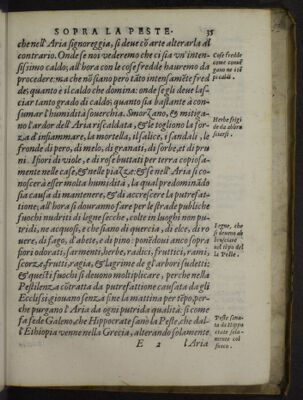 SOPRA LA PESTE. 35
che nell'Aria signoreggia, si deue cō arte alterarla al
contrario. Onde se noi vederemo che ci sia vn'inten-
sissimo caldo, all'hora con le cose fredde hauremo da
procedere: ma che nō siano però tāto intense, mēte fred
de; quanto è il caldo che domina: onde se gli deue las-
ciar tanto grado di caldo; quanto sia bastante à con-
sumar l'humidità souerchia. Smorzano, & mitiga-
no l'ardor dell'Aria riscaldata, & le togliono la for-
za d'infiammare, la mortella, il salice, i sandali, le
fronde di pero, di melo, di granati, di sorbe, et di pru
ni. I fiori di viole, e di rose buttati per terra copiosa-
mente nelle case, & nelle piazze; & se nell'Aria si co-
noscerà esser molta humidità, la qual predomināda
sia causa di mantenere, & di accrescere la putrefat-
tione; all'hora si douranno fare per le strade publiche
fuochi nudriti di legne secche, colte in luoghi non pu-
tridi, ne acquosi, e che siano di quercia, di elce, di ro
uere, di fago, d'abete, e di pino: ponēdoui anco sopra
fiori odorati, sarmenti, herbe, radici, fruttici, rami,
scorze, frutti, ragia, & lagrime de gl'arbori sudetti;
& questi fuochi si deuono moltiplicare, perche nella
Pestilenza cōtratta da putrefattione causata dagli
Ecclissi, giouano senza fine la mattina per tēpo, per-
che purgano l'Aria da ogni putrida qualità: si come
fa fede Galeno, che Hippocrate sanò la Peste, che dal-
l'Ethiopia venne nella Grecia, alterando solamente
E 2 l'Aria
Cose fredde
come
gano ne i tē
pi caldi.
Herbe frigi
de da
Legne, che
si deueno
brusciare
nel tēpo del
la Peste.
Peste sana-
ta da Hippo
crate sola-
mente col
fuoco.